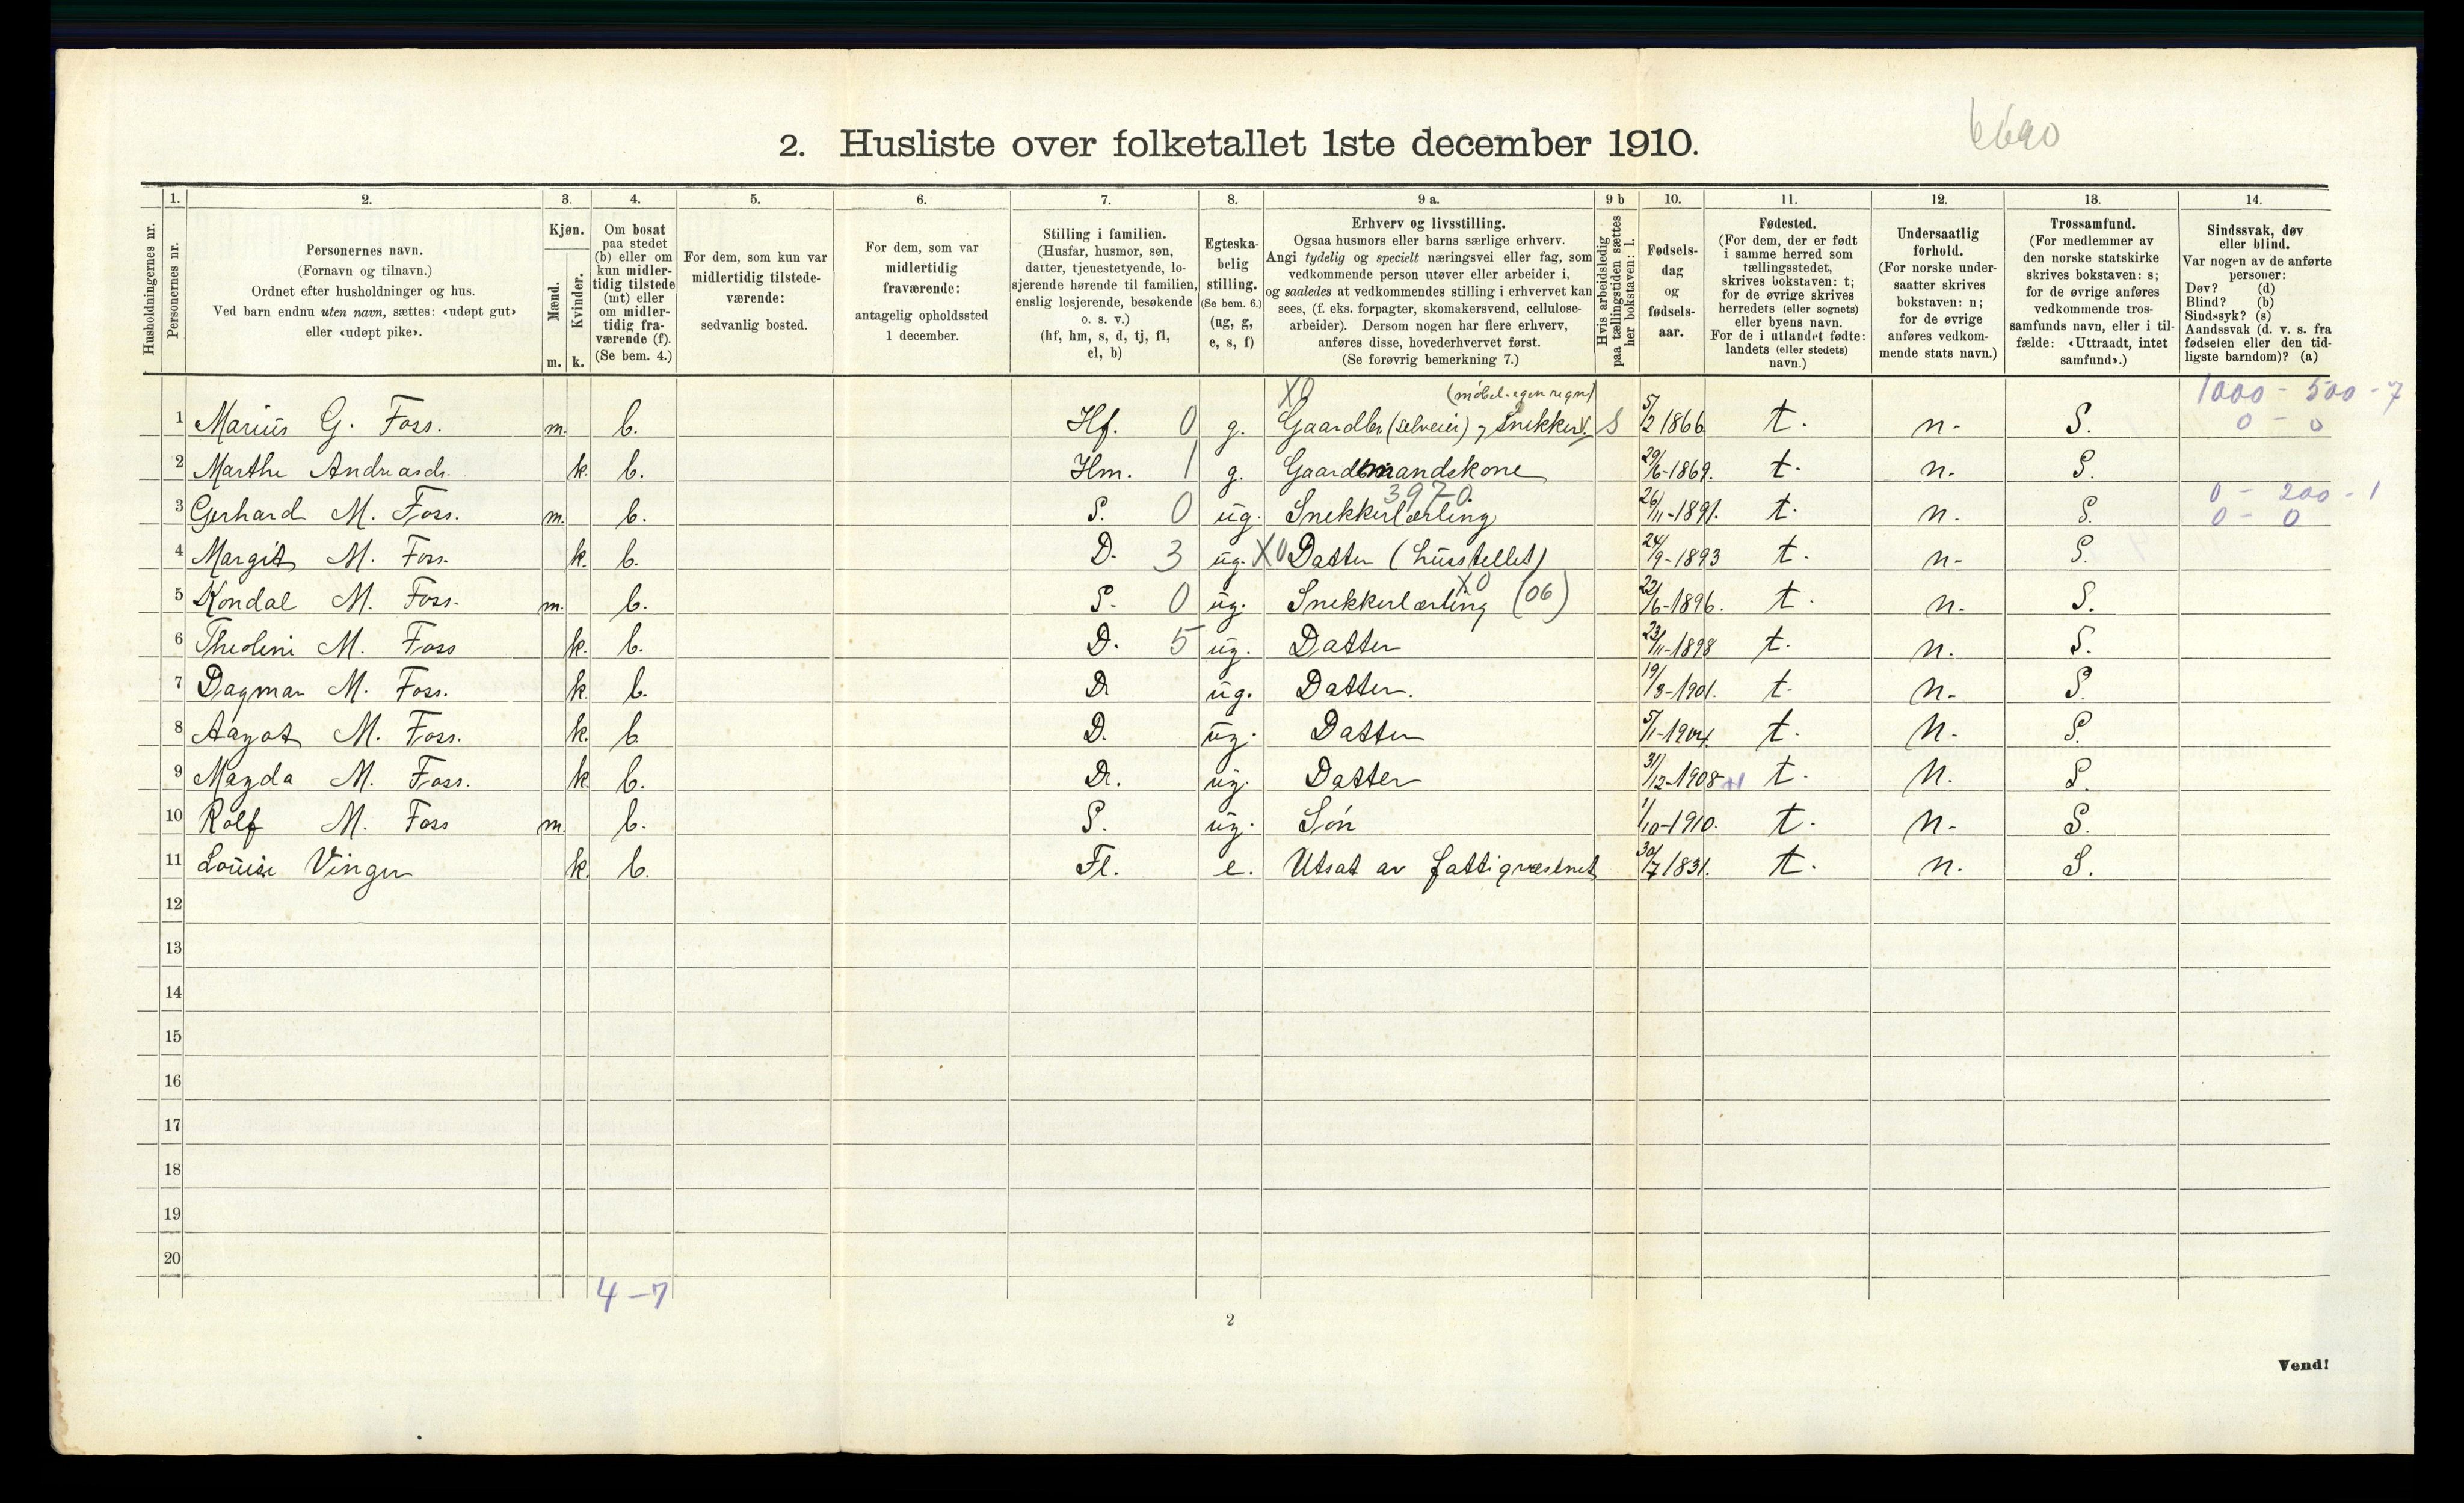 6690
2. Husliste over folketallet 1ste december 1910.
Husholdningernes nr.
1. Personernes nr.
2. Personernes navn.
(Fornavn og tilnavn.)
Ordnet efter husholdninger og hus.
Ved barn endnu uten navn, sættes: «udøpt gut»
eller «udøpt pike».
3. Kjøn.
Mænd. m.
Kvinder. k.
4. Om bosat
paa stedet
(b) eller om
kun midler-
tidig tilstede
(mt) eller
om midler-
tidig fra-
værende (f).
(Se bem. 4.)
5. For dem, som kun var
midlertidig tilstede-
værende:
sedvanlig bosted.
6. For dem, som var
midlertidig
fraværende:
antagelig opholdssted
1 december.
7. Stilling i familien.
(Husfar, husmor, søn,
datter, tjenestetyende, lo-
sjerende hørende til familien,
enslig losjerende, besøkende
o. s. v.)
(hf, hm, s, d, tj, fl,
el, b)
8. Egteska-
belig
stilling.
(Se bem. 6.)
(ug, g,
e, s, f)
9 a. Erhverv og livsstilling.
Ogsaa husmors eller barns særlige erhverv.
Angi tydelig og specielt næringsvei eller fag, som
vedkommende person utøver eller arbeider i,
og saaledes at vedkommendes stilling i erhvervet kan
sees, (f. eks. forpagter, skomakersvend, cellulose-
arbeider). Dersom nogen har flere erhverv,
anføres disse, hovederhvervet først.
(Se forøvrig bemerkning 7.)
9 b Hvis arbeidsledig
paa tællingstiden sættes
her bokstaven: l.
10. Fødsels-
dag
og
fødsels-
aar.
11. Fødested.
(For dem, der er født
i samme herred som
tællingsstedet,
skrives bokstaven: t;
for de øvrige skrives
herredets (eller sognets)
eller byens navn.
For de i utlandet fødte:
landets (eller stedets)
navn.)
12. Undersaatlig
forhold.
(For norske under-
saatter skrives
bokstaven: n;
for de øvrige
anføres vedkom-
mende stats navn.)
13. Trossamfund.
(For medlemmer av
den norske statskirke
skrives bokstaven: s;
for de øvrige anføres
vedkommende tros-
samfunds navn, eller i til-
fælde: «Uttraadt, intet
samfund».)
14. Sindssvak, døv
eller blind.
Var nogen av de anførte
personer:
Døv? (d)
Blind? (b)
Sindssyk? (s)
Aandssvak (d. v. s. fra
fødselen eller den tid-
ligste barndom)? (a)
X0 (møbel-egen regn) 1000 - 500 - 7
1 Marius G. Foss. m. b. Hf. 0 g. Gaardbr. (selveier) og Snekker S 5/2 1866 t. n. S. 0 - 0
2 Marthe Andreasdr. k. b. Hm. 1 g. Gaardmandskone 29/6-1869. t. n. S.
3970. 0 - 200 - 1
3 Gerhard M. Foss. m. b. S. 0 ug. Snekkerlærling 26/11-1891. t. n. S. 0 - 0
4 Margit M. Foss. k. b. D. 3 ug. X0 Datter (husstellet) 24/9-1893 t. n. S.
X0
5 Kondal M. Foss. m. b. S. 0 ug. Snekkerlærling (06) 22/6-1896. t. n. S.
6 Theoline M. Foss k. b. D. 5 ug. Datter 23/11-1898 t. n. S.
7 Dagmar M. Foss. k. b. D ug. Datter. 19/3-1901. t. n. S.
8 Aagot M. Foss. k. b D. ug. Datter 5/1-1904. t. n. S.
9 Magda M. Foss. k. b. D. ug. Datter 31/12-1908 t. n. S.
10 Rolf M. Foss m. b. S. ug. Søn 1/10-1910. t. n. S.
11 Louise Vinger k. b. Fl. e. Utsat av fattigvæsenet 30/7 1831. t. n. S.
12
13
14
15
16
17
18
19
20
4-7
2
Vend!